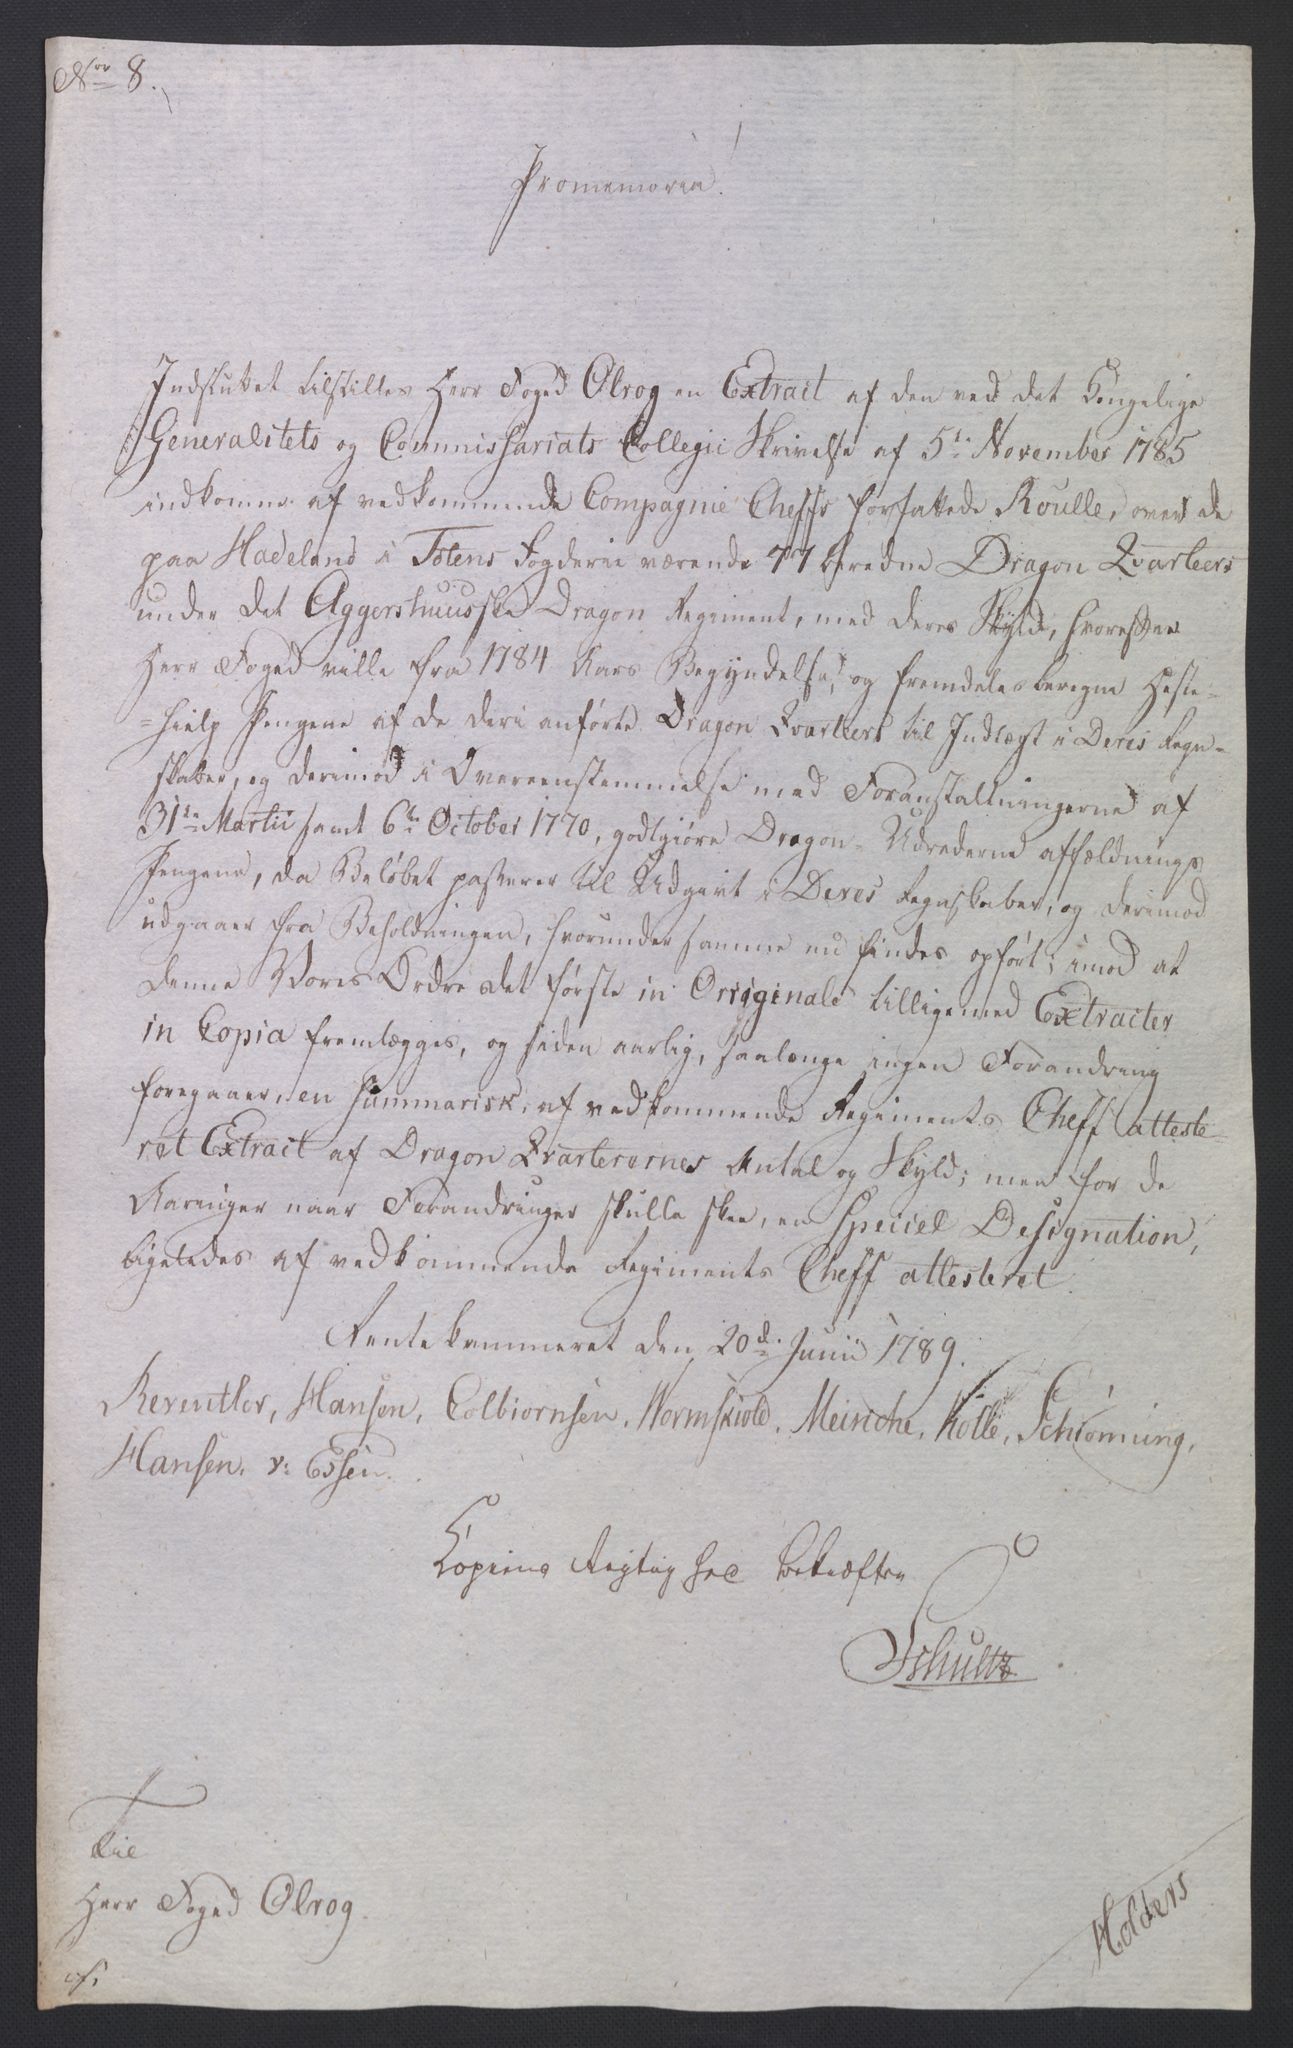 Nor 8.
Promemoria.
Indsluttet tilstilles Herr Foged Olrog en Extract af den ved det Kongelige
Generalitets og Commissariats Collegii Skrivelse af 5te November 1785
indkomne af vedkommende Compagnie Cheffs forfattede Roulle, over de
paa Hadeland i Totens Fogderie værende 77 beredne Dragon Qvarteers
under det Aggershuusske Dragon Regiment, med deres Skyld, hvorefter
Herr Foged ville fra 1784 Aars Begyndelse, og fremdeles beregne Heste-
=hielp Pengene af de deri anførte Dragon Qvarteers til Indtægt i Deres Regn-
skaber, og derimod i Overeenstemmelse med Foranstaltningerne af
31te Martii samt 6te October 1770, godtgiøre Dragon-Udrederne affældnings
Pengene, da Beløbet passerer til Udgivt i Deres Regnskaber, og derimod
udgaaer fra Beholdningen, hvorunder samme nu findes opført; imod at
denne Vores Ordre det første in Originale tilligemed Extracter
in Copia fremlægges, og siden aarlig, saalænge ingen Forandring
foregaaer, en summarisk, af vedkommende Regiments Cheff atteste-
ret Extract af Dragon Qvarterernes Antal og Skyld; men for de
Aaringer naar Forandringer skulle skee, en speciel Designation,
ligeledes af vedkommende Regiments Cheff attesteret.
Rentekammeret den 20d Junii 1789.
Reventlov, Hansen, Colbiornsen, Wormskiold, Meinche, Kolle, Schiønning,
Hansen, v: Essen.
Copiens Rigtighed bekræfter
Schultz
Til
Herr Foged Olrog
Holders